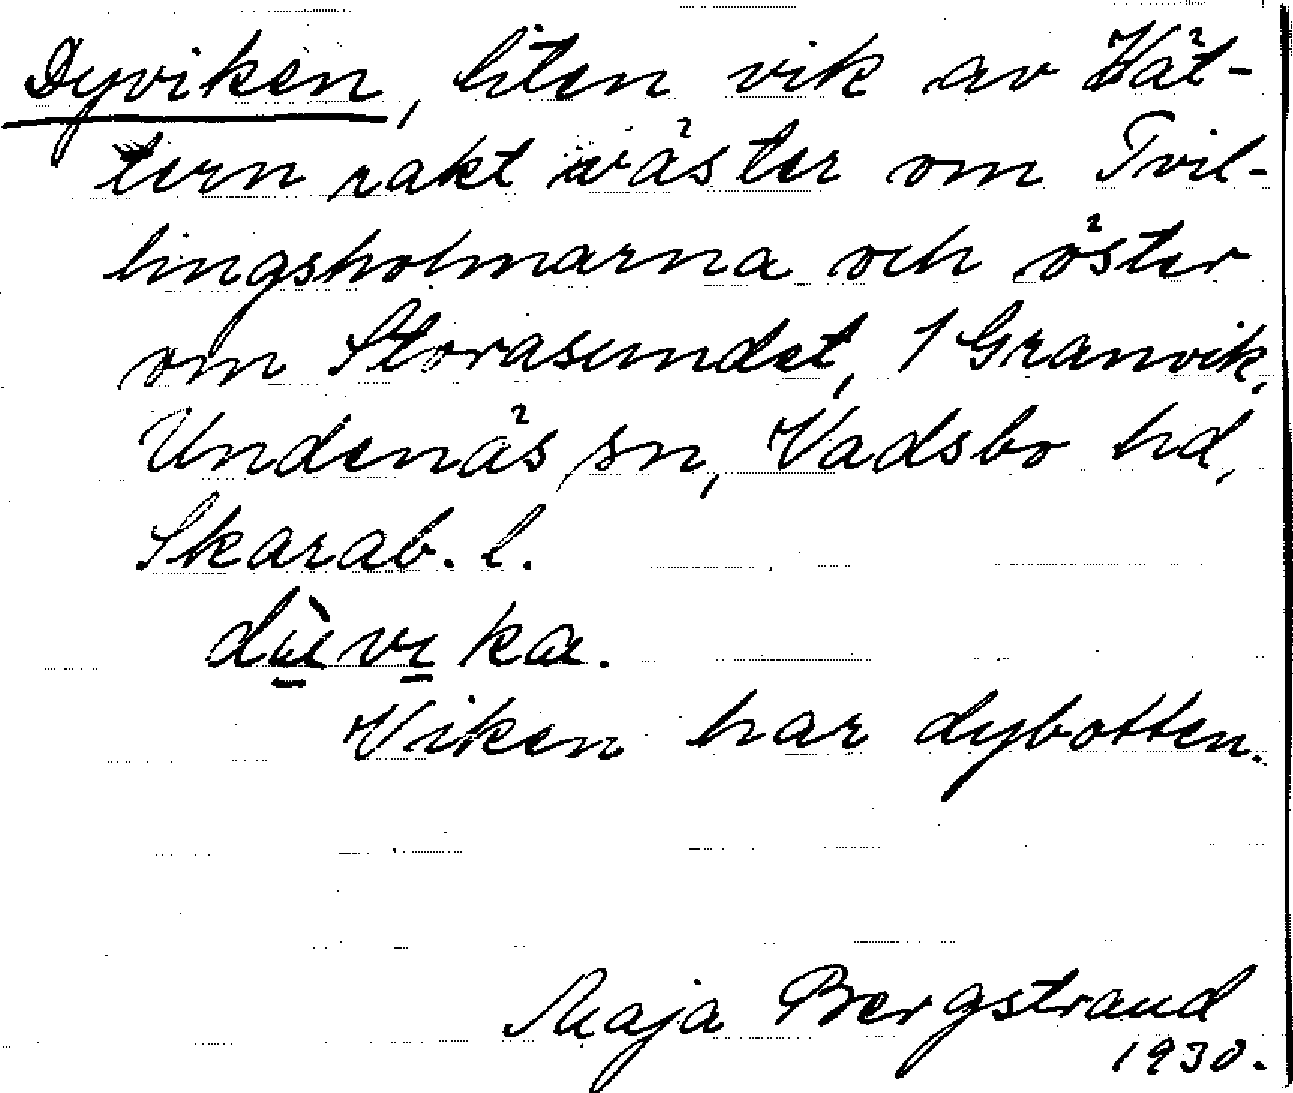 Dyviken, liten vik av Vät-
tern rakt väster om Tvil-
lingsholmarna och öster
om Storasundet, 1 Granvik,
Undenäs sn, Vadsbo hd,
Skarab. l.
Viken har dybotten.
Maja Bergstrand
1930.